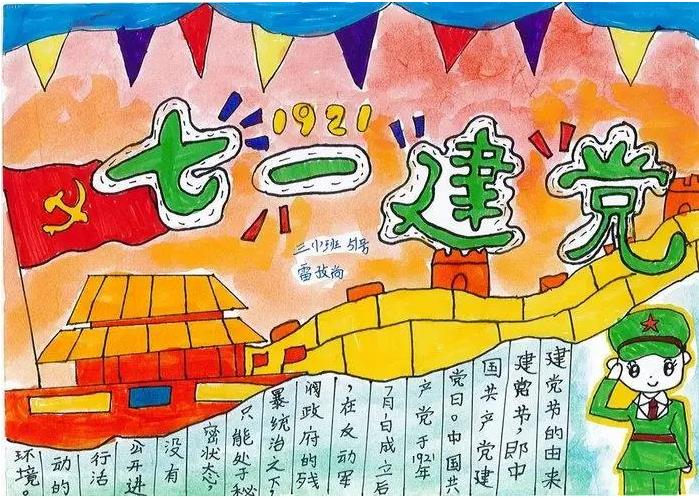 1921
七一建党
建党节的由来
建党节,即中
国共产党建
党日。中国共
产党于1921年
7月日成立后
,在反动军
阀政府的残
暴统治之下,
只能处于秘
密状态,
没有
公开进
行活
动的
环境。